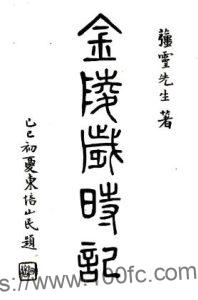 靈先生著
金陵歲時記
己巳初夏東培山民題
s://www.100fc.com